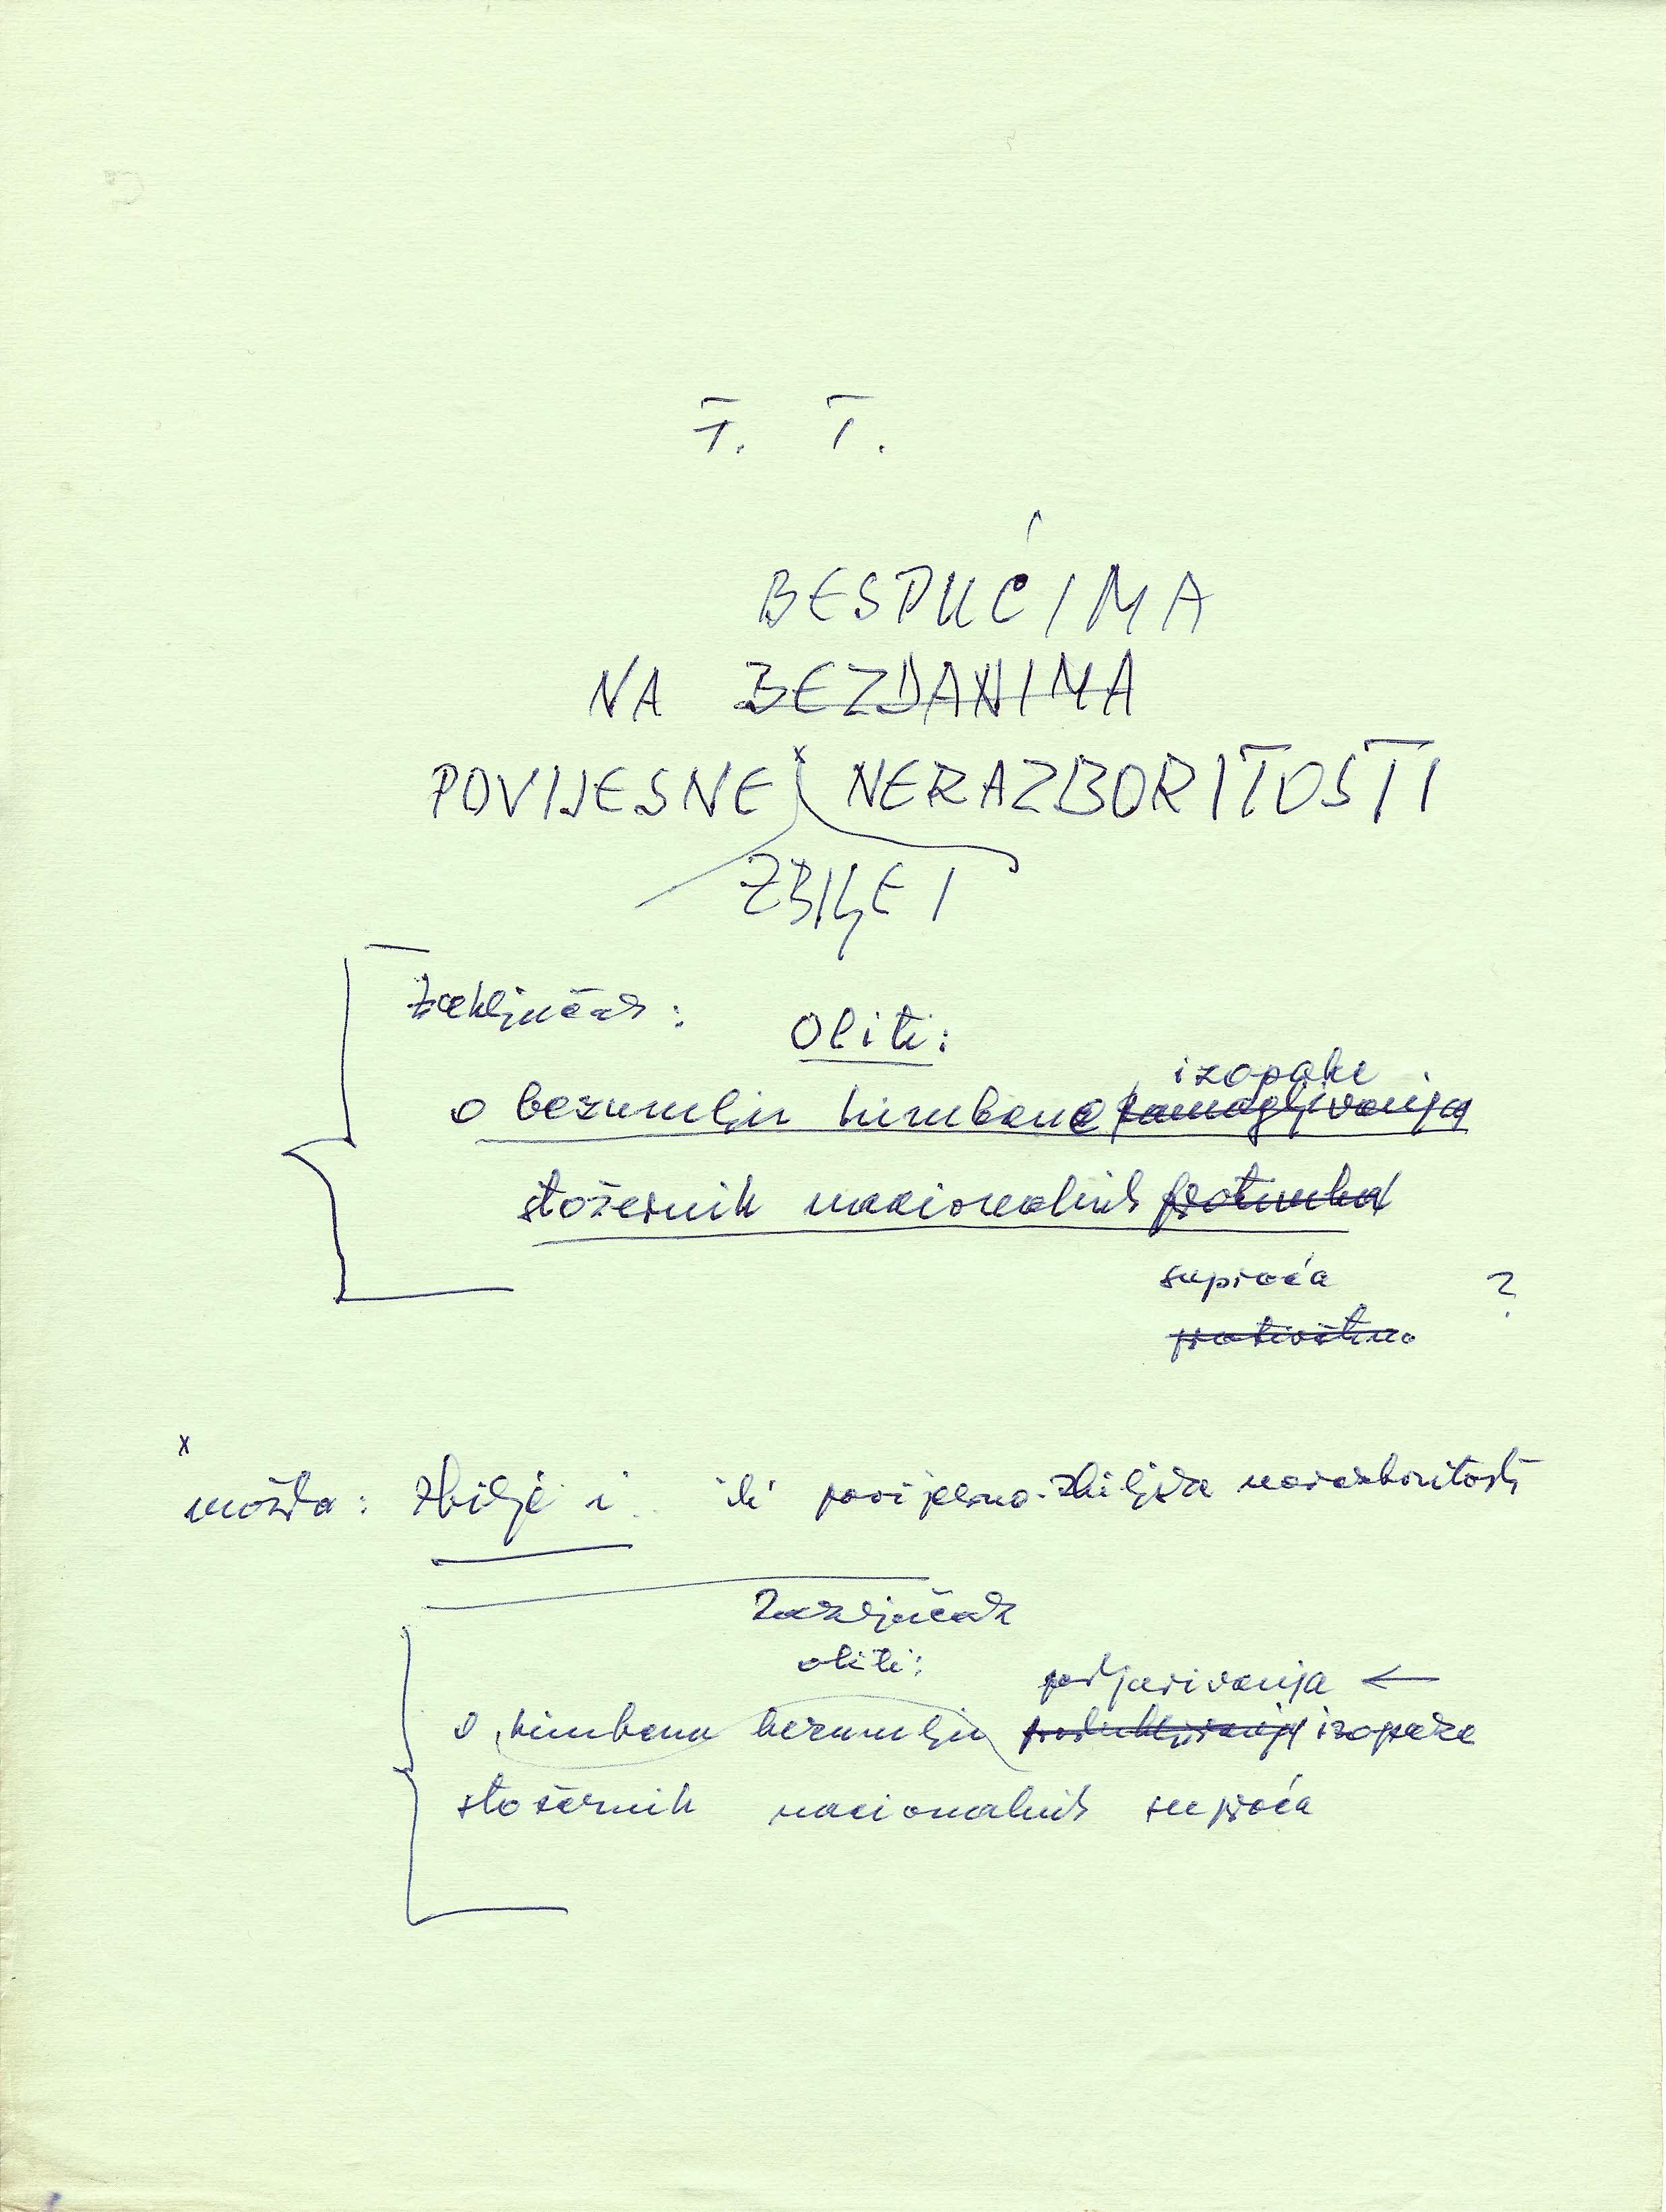 T. T.
BESPUĆIMA
NA BEZDANIMA
POVIJESNE NERAZBORITOSTI
ZBILJE I
Zaključak:
Oliti:
izopake
o bezumlju himbene zamagljivanja
stožernih nacionalnih
suproća ?
x
možda: Zbilje i .. ili povijesno-zbiljske nerazboritosti
Zaključak
oliti:
podjarivanja ←
o himbenu bezumlju izopake
stožernih nacionalnih suproća